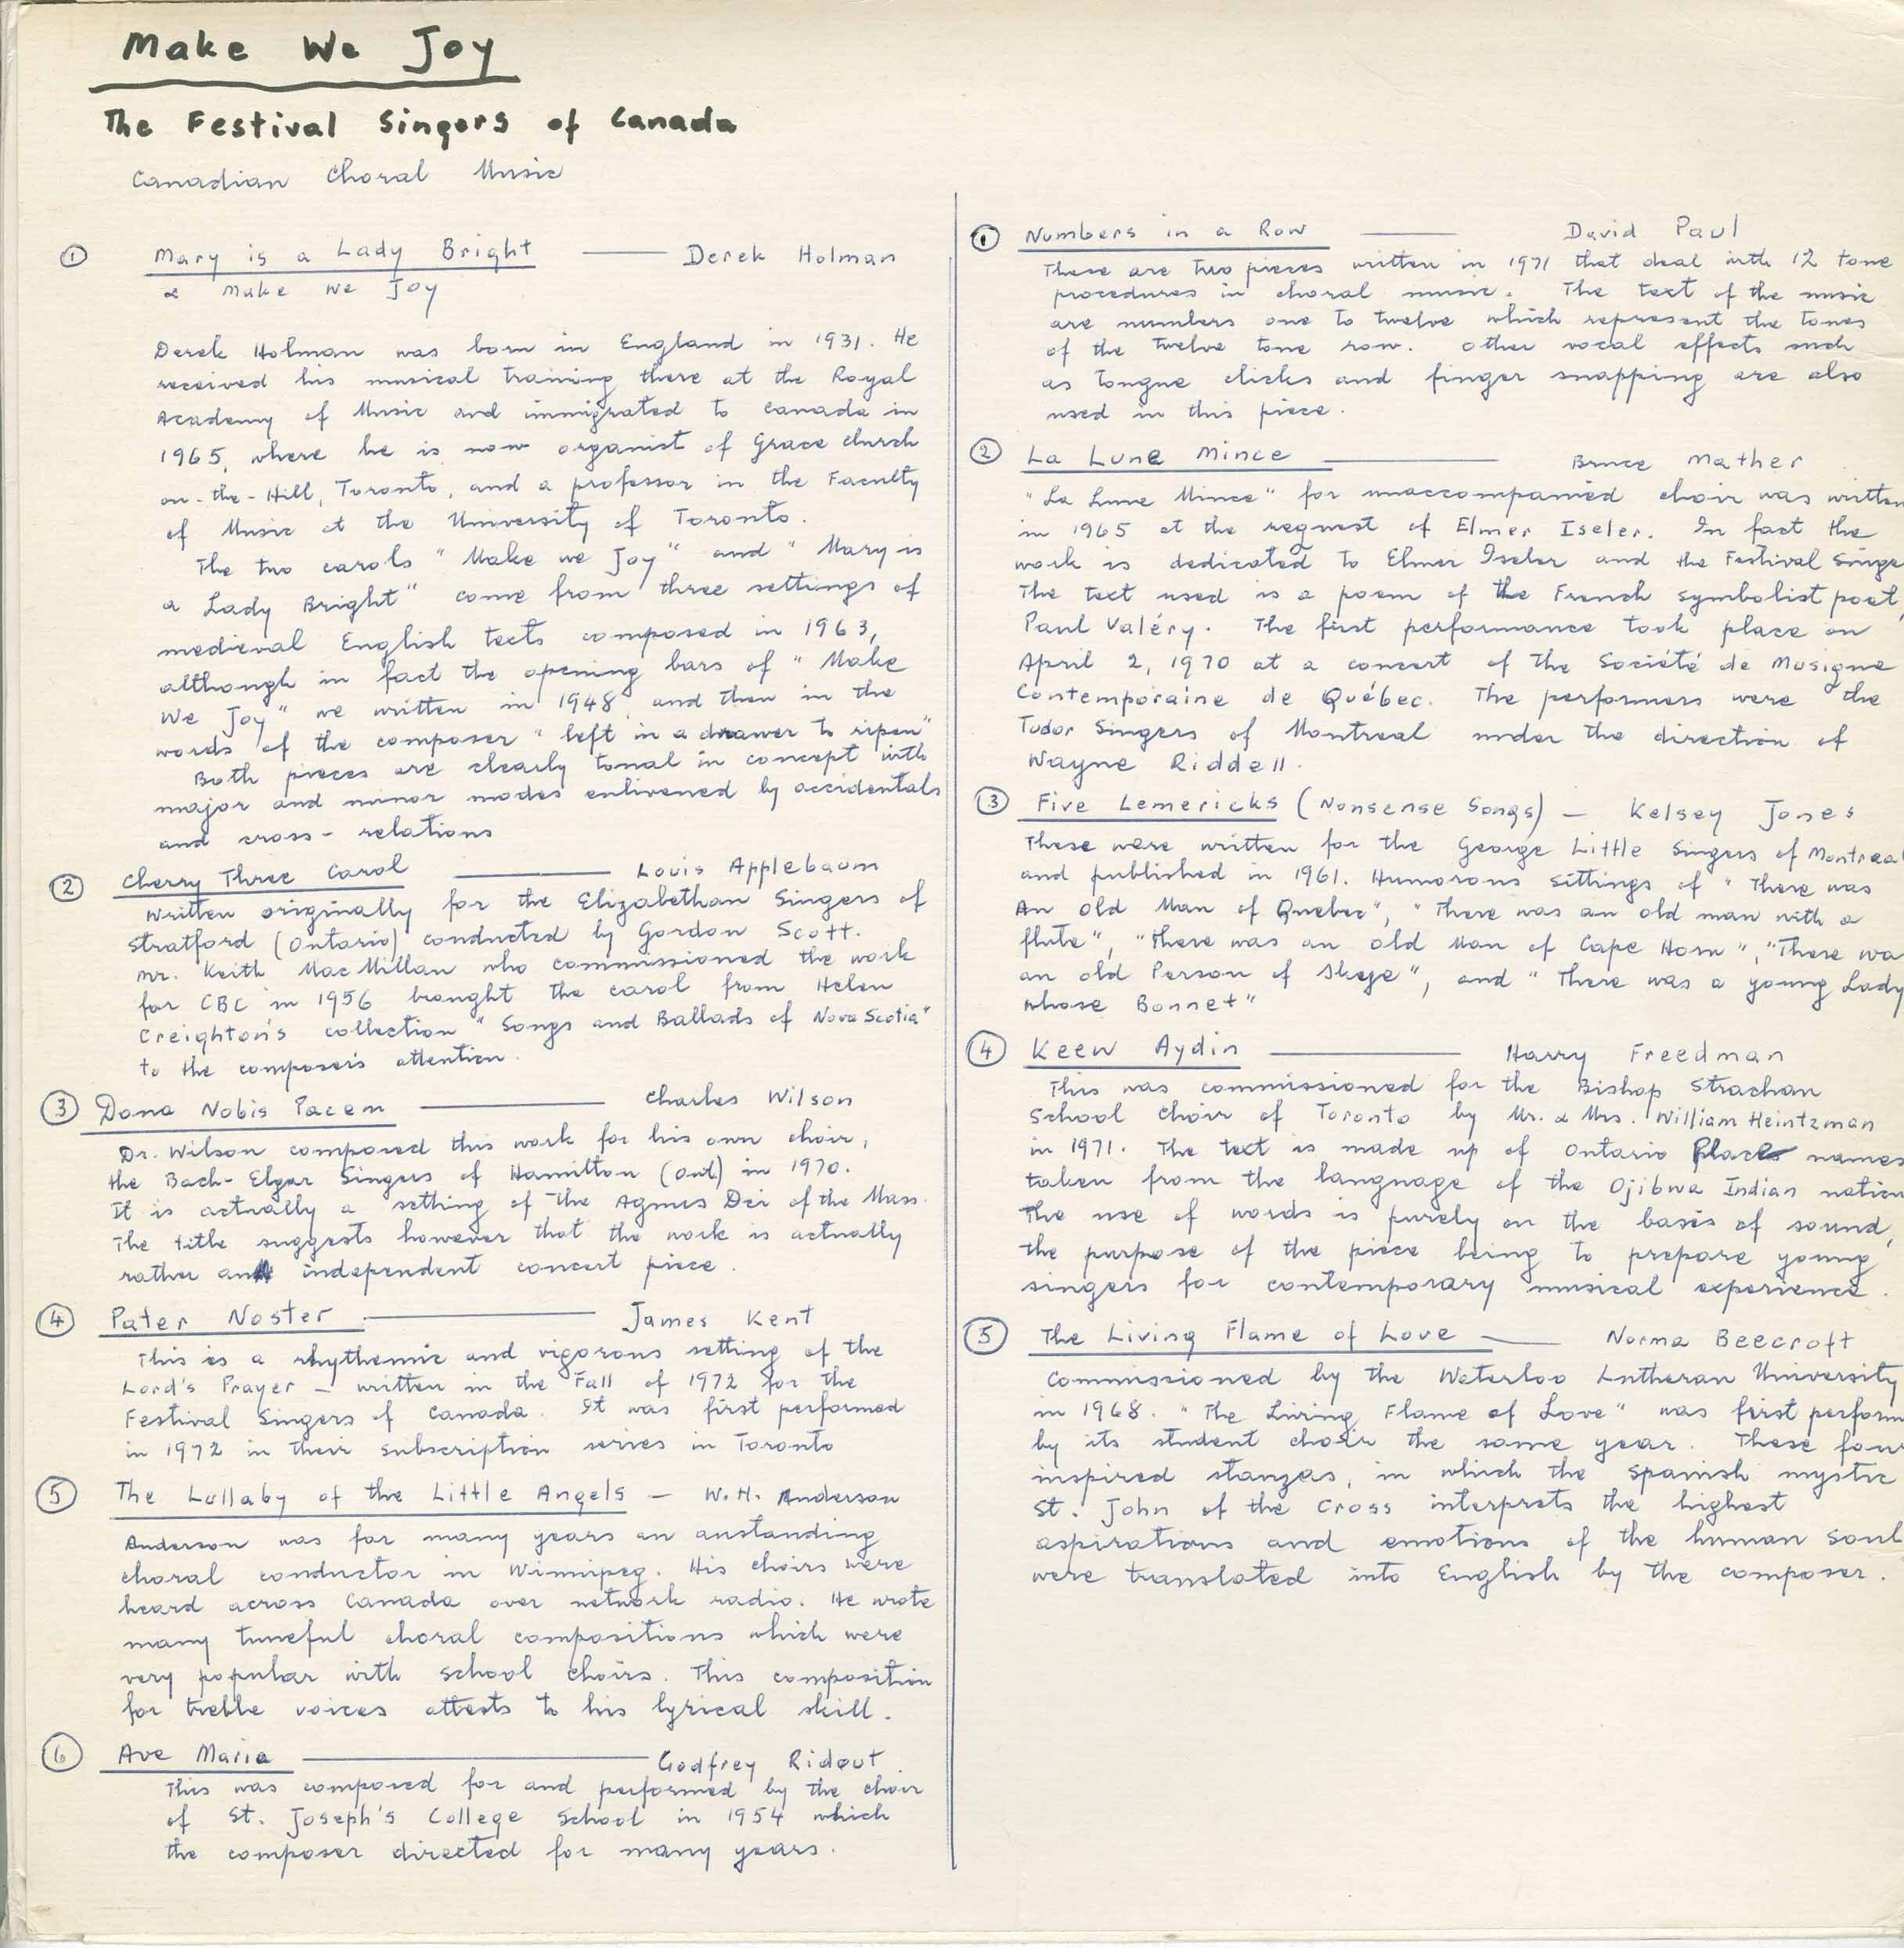 Make We Joy
The Festival Singers of Canada
Canadian Choral Music
① Mary is a Lady Bright —— Derek Holman
& Make We Joy
Derek Holman was born in England in 1931. He
received his musical training there at the Royal
Academy of Music and immigrated to Canada in
1965, where he is now organist of Grace church
on-the-Hill, Toronto, and a professor in the Faculty
of Music at the University of Toronto.
The two carols "Make we Joy" and "Mary is
a Lady Bright" come from three settings of
medieval English texts composed in 1963,
although in fact the opening bars of "Make
We Joy" we written in 1948 and then in the
words of the composer "left in a drawer to ripen"
Both pieces are clearly tonal in concept with
major and minor modes enlivened by accidentals
and cross-relations
② Cherry Three Carol —— Louis Applebaum
Written originally for the Elizabethan Singers of
Stratford (Ontario) conducted by Gordon Scott.
Mr. Keith MacMillan who commissioned the work
for CBC in 1956 brought the carol from Helen
Creighton's collection "Songs and Ballads of Nova Scotia"
to the composer's attention.
③ Dona Nobis Pacem —— Charles Wilson
Dr. Wilson composed this work for his own choir,
the Bach-Elgar Singers of Hamilton (Ont) in 1970.
It is actually a setting of the Agnus Dei of the Mass.
The title suggests however that the work is actually
rather an independent concert piece.
④ Pater Noster —— James Kent
This is a rhythemic and vigorous setting of the
Lord's Prayer – written in the Fall of 1972 for the
Festival Singers of Canada. It was first performed
in 1972 in their subscription series in Toronto
⑤ The Lullaby of the Little Angels — W.H. Anderson
Anderson was for many years an austanding
choral conductor in Winnipeg. His choirs were
heard across Canada over network radio. He wrote
many tuneful choral compositions which were
very popular with school choirs. This composition
for treble voices attests to his lyrical skill.
⑥ Ave Maria —— Godfrey Ridout.
This was composed for and performed by the choir
of St. Joseph's College School in 1954 which
the composer directed for many years.
① Numbers in a Row —— David Paul
These are two pieces written in 1971 that deal with 12 tone
procedures in choral music. The text of the music
are numbers one to twelve which represent the tones
of the twelve tone row. Other vocal effects such
as tongue clicks and finger snapping are also
used in this piece.
② La Lune Mince —— Bruce Mather
"La Lune Mince" for unaccompanied choir was written
in 1965 at the request of Elmer Iseler. In fact the
work is dedicated to Elmer Iseler and the Festival Singe
The text used is a poem of the French symbolist poet,
Paul Valéry. The first performance took place on
April 2, 1970 at a concert of the Société de Musique
Contemporaine de Québec. The performers were the
Tudor Singers of Montreal under the direction of
Wayne Riddell.
③ Five Lemericks (Nonsense Songs) — Kelsey Jones
These were written for the George Little Singers of Montreal
and published in 1961. Humorous sittings of "There was
An Old Man of Quebec", "There was an old man with a
flute", "There was an old Man of Cape Horn", "There wa
an old Person of Skeye", and "There was a young Lady
whose Bonnet"
④ Keew Aydin —— Harry Freedman
This was commissioned for the Bishop Strachan
School Choir of Toronto by Mr. & Mrs. William Heintzman
in 1971. The text is made up of Ontario Place names
taken from the language of the Ojibwa Indian nation
The use of words is purely on the basis of sound,
the purpose of the piece being to prepare young
singers for contemporary musical experience.
⑤ The Living Flame of Love —— Norma Beecroft
Commissioned by the Waterloo Lutheran University
in 1968. "The Living Flame of Love" was first perform
by its student choir the same year. These four
inspired stanzas, in which the Spanish mystic
St. John of the Cross interprets the highest
aspirations and emotions of the human soul
were translated into English by the composer.